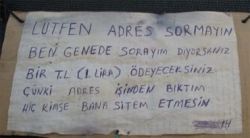 LÜTFEN ADRES SORMAYIN
BEN GENEDE SORAYIM DİYORSANIZ
BİR TL (1 LİRA) ÖDEYECEKSİNİZ
ÇÜNKİ ADRES İŞİNDEN BIKTIM
HİÇ KİMSE BANA SİTEM ETMESİN